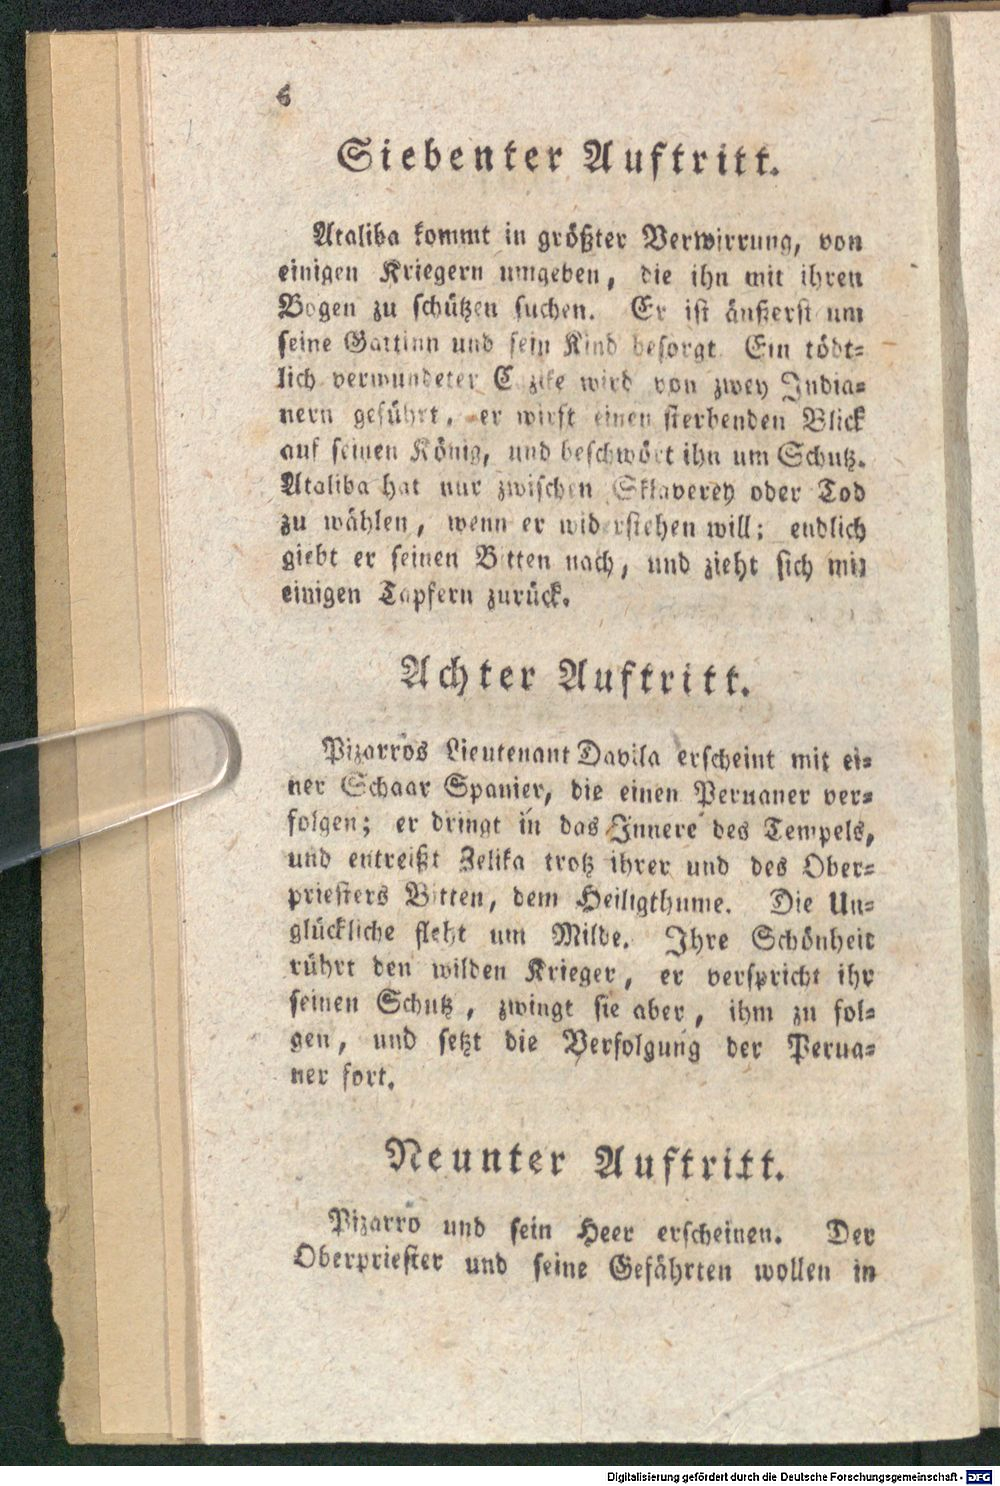 6
Siebenter Auftritt.
Ataliba kommt in größter Verwirrung, von
einigen Kriegern umgeben, die ihn mit ihren
Bogen zu schützen suchen. Er ist äußerst um
seine Gattinn und sein Kind besorgt. Ein tödt=
lich verwundeter Cazike wird von zwey India=
nern geführt, er wirft einen sterbenden Blick
auf seinen König, und beschwört ihn um Schutz.
Ataliba hat nur zwischen Sklaverey oder Tod
zu wählen, wenn er widerstehen will; endlich
giebt er seinen Bitten nach, und zieht sich mit
einigen Tapfern zurück.
Achter Auftritt.
Pizarros Lieutenant Davila erscheint mit ei=
ner Schaar Spanier, die einen Peruaner ver=
folgen; er dringt in das Innere des Tempels,
und entreißt Zelika trotz ihrer und des Ober=
priesters Bitten, dem Heiligthume. Die Un=
glückliche fleht um Milde. Ihre Schönheit
rührt den wilden Krieger, er verspricht ihr
seinen Schutz, zwingt sie aber, ihm zu fol=
gen, und setzt die Verfolgung der Perua=
ner fort.
Neunter Auftritt.
Pizarro und sein Heer erscheinen. Der
Oberpriester und seine Gefährten wollen in
Digitalisierung gefördert durch die Deutsche Forschungsgemeinschaft - DFG